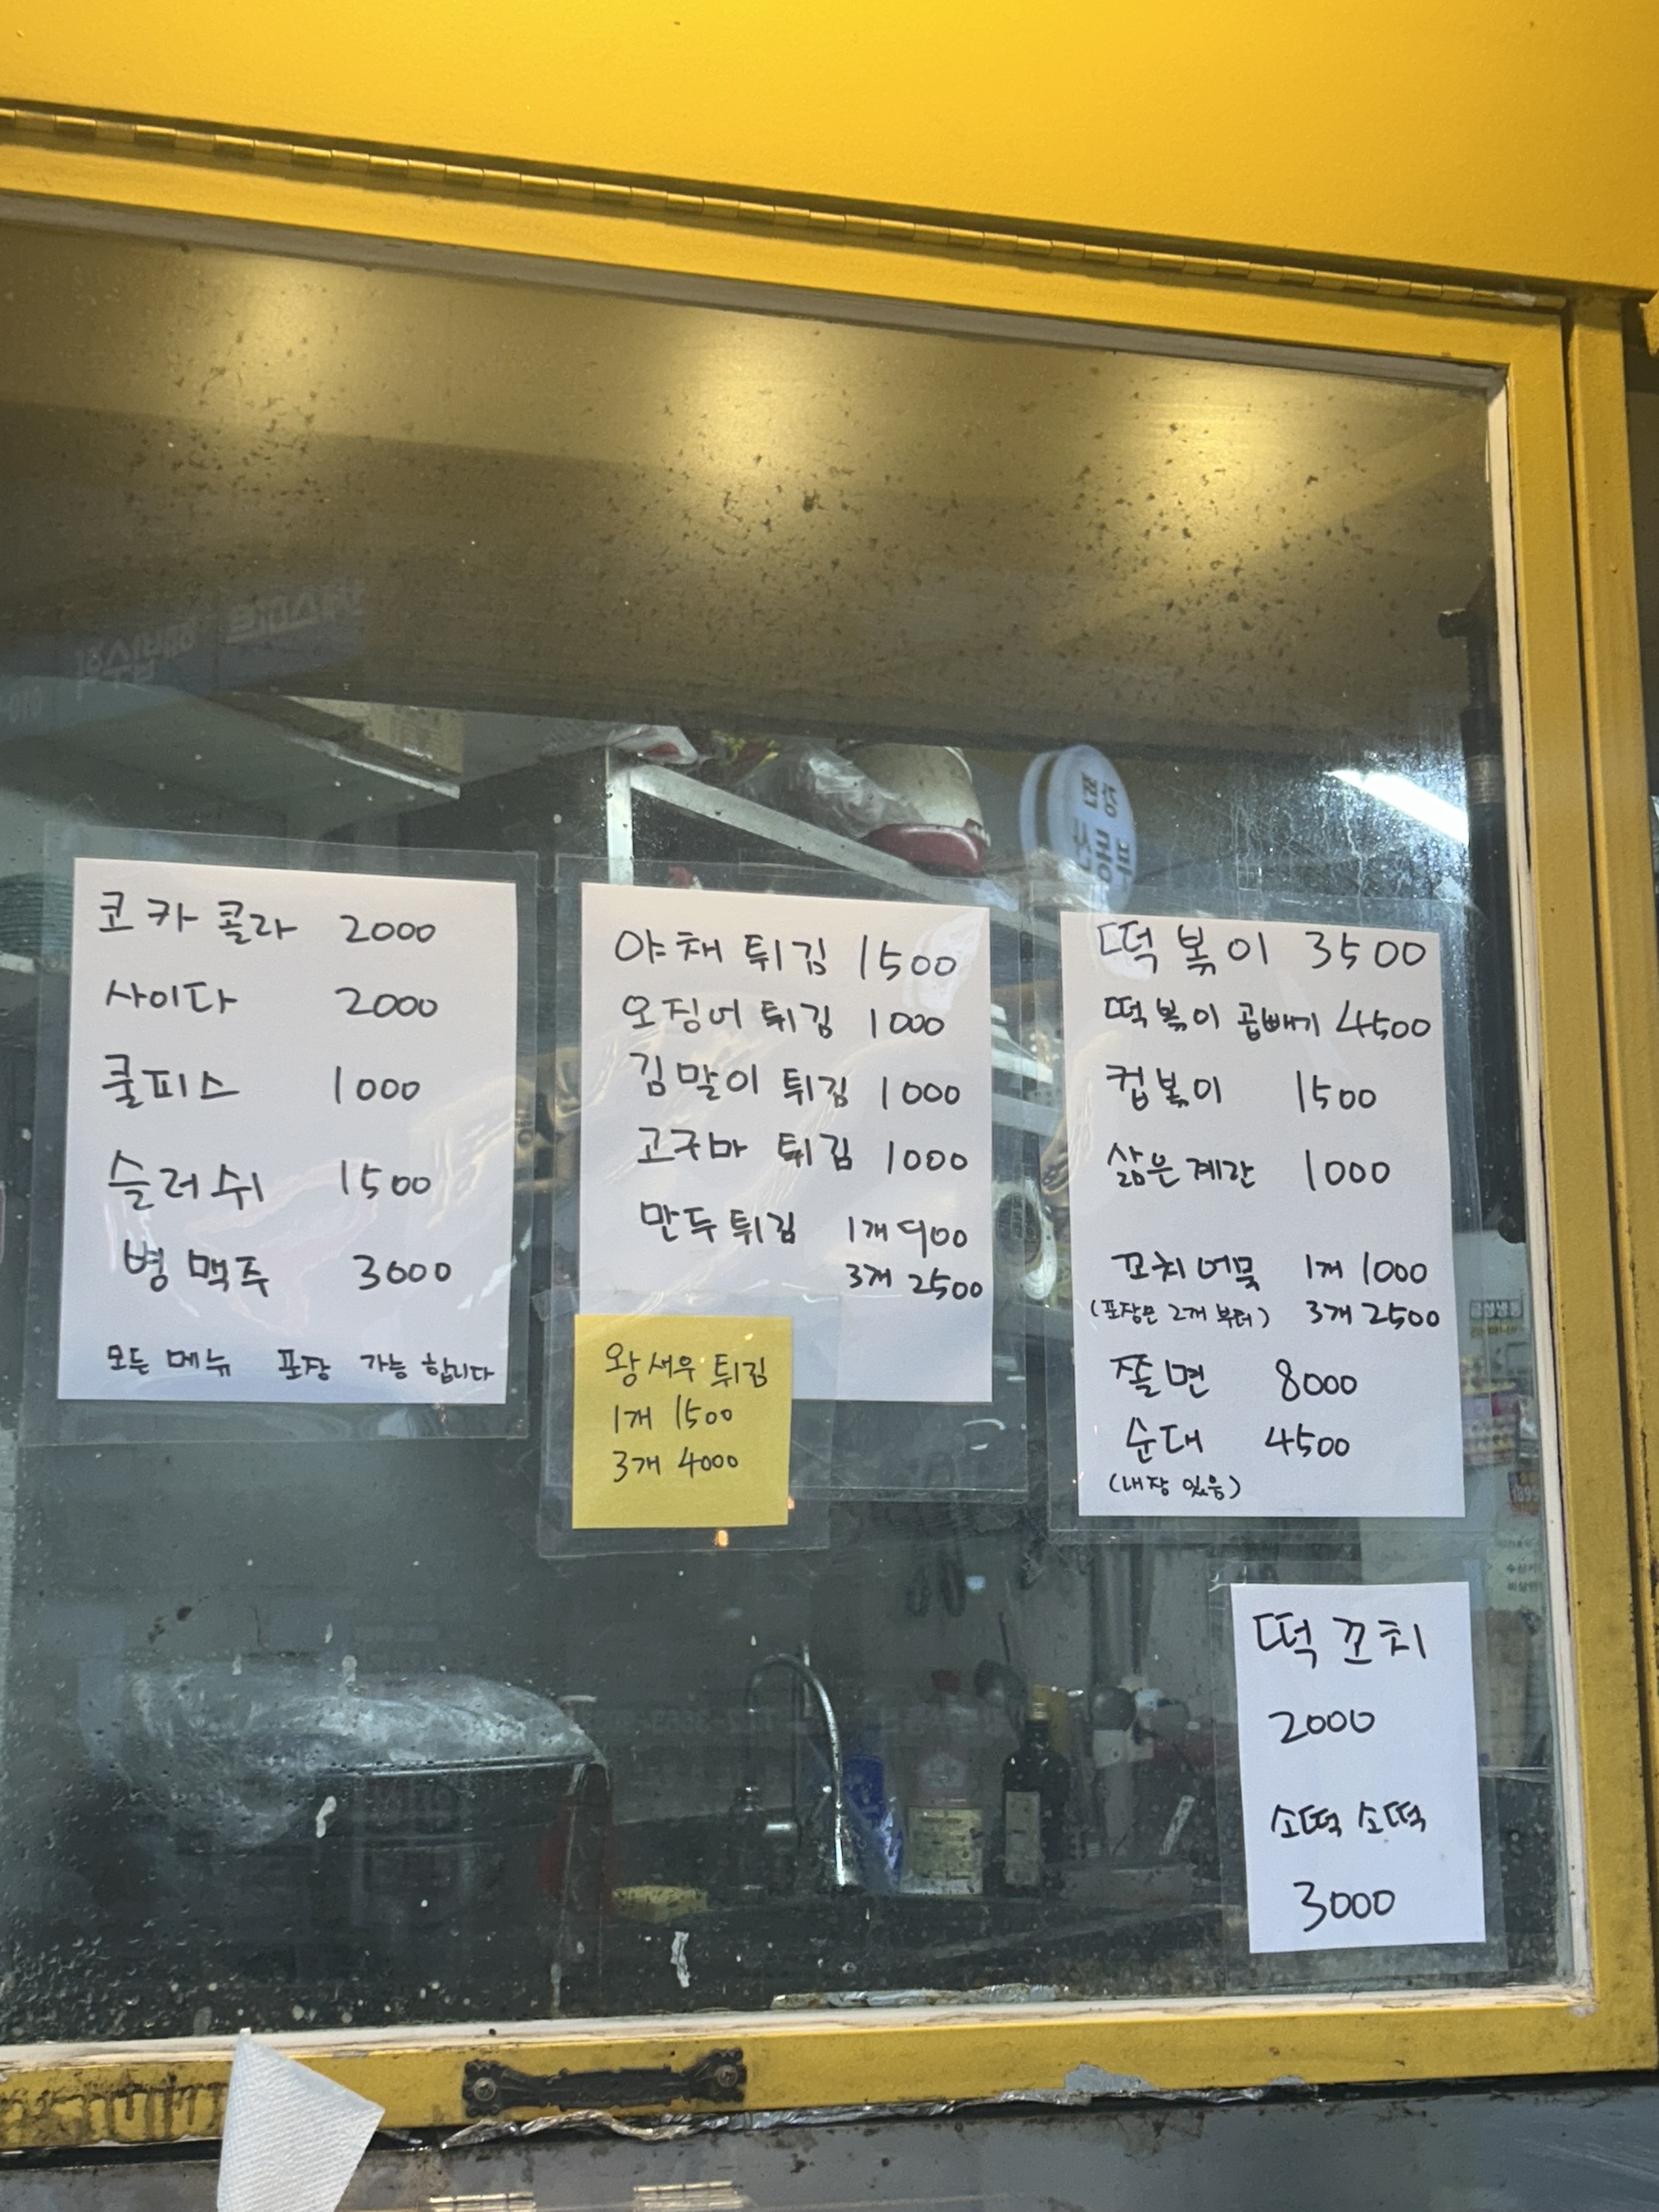 코카콜라 2000
사이다 2000
쿨피스 1000
슬러쉬 1500
병맥주 3000
모든 메뉴 포장 가능 합니다
야채 튀김 1500
오징어 튀김 1000
김말이 튀김 1000
고구마 튀김 1000
만두 튀김 1개 900
3개 2500
왕새우 튀김
1개 1500
3개 4000
떡볶이 3500
떡볶이 곱빼기 4500
컵볶이 1500
삶은계란 1000
꼬치어묵 1개 1000
(포장은 2개 부터) 3개 2500
쫄면 8000
순대 4500
(내장 있음)
떡꼬치
2000
소떡 소떡
3000